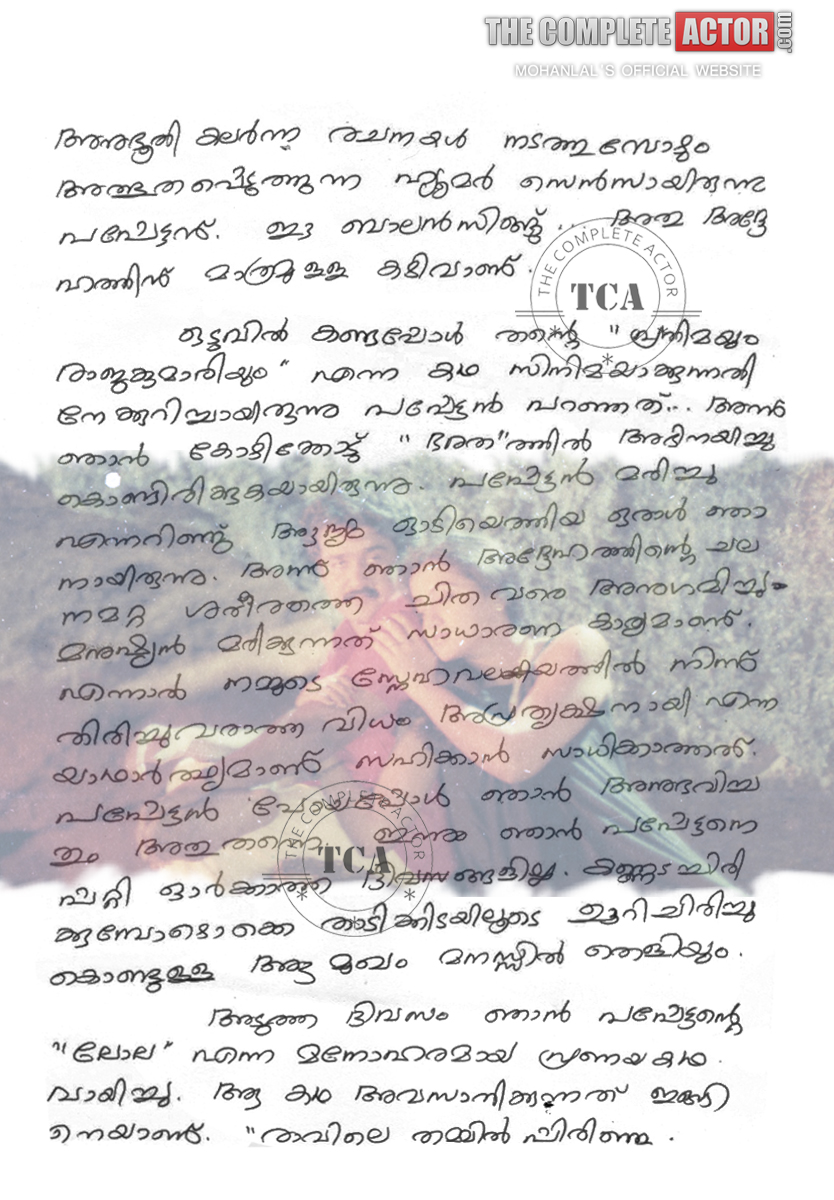 THE COMPLETE ACTOR.com
MOHANLAL'S OFFICIAL WEBSITE
അനുഭൂതി കലർന്ന രചനകൾ നടത്തുമ്പോഴും
അത്ഭുതപ്പെടുത്തുന്ന ഹ്യൂമർ സെൻസായിരുന്നു
പപ്പേട്ടന്. ഈ ബാലൻസിങ്ങ്... അത് അദ്ദേ
ഹത്തിന് മാത്രമുള്ള കഴിവാണ്.
ഒടുവിൽ കണ്ടപ്പോൾ തന്റെ "പ്രതിമയും
രാജകുമാരിയും" എന്ന കഥ സിനിമയാക്കുന്നതി
നേക്കുറിച്ചായിരുന്നു പപ്പേട്ടൻ പറഞ്ഞത്... അന്ന്
ഞാൻ കോഴിക്കോട്ട് "ഭരത"ത്തിൽ അഭിനയിച്ചു
കൊണ്ടിരിക്കുകയായിരുന്നു. പപ്പേട്ടൻ മരിച്ചു
എന്നറിഞ്ഞ് ആദ്യം ഓടിയെത്തിയ ഒരാൾ ഞാ
നായിരുന്നു. അന്ന് ഞാൻ അദ്ദേഹത്തിന്റെ ചല
നമറ്റ ശരീരത്തെ ചിത വരെ അനുഗമിച്ചു.
മനുഷ്യൻ മരിക്കുന്നത് സാധാരണ കാര്യമാണ്.
എന്നാൽ നമ്മുടെ സ്നേഹവലയത്തിൽ നിന്ന്
തിരിച്ചുവരാത്ത വിധം അപ്രത്യക്ഷനായി എന്ന
യാഥാർത്ഥ്യമാണ് സഹിക്കാൻ സാധിക്കാത്തത്.
പപ്പേട്ടൻ പോയപ്പോൾ ഞാൻ അനുഭവിച്ച
തും അതുതന്നെ. ഇന്നും ഞാൻ പപ്പേട്ടനെ
പ്പറ്റി ഓർക്കാത്ത ദിവസങ്ങളില്ല. കണ്ണടച്ചിരി
ക്കുമ്പോഴൊക്കെ താടിക്കിടയിലൂടെ ഊറിചിരിച്ചു
കൊണ്ടുള്ള ആ മുഖം മനസ്സിൽ തെളിയും.
അടുത്ത ദിവസം ഞാൻ പപ്പേട്ടന്റെ
"ലോല" എന്ന മനോഹരമായ പ്രണയകഥ
വായിച്ചു. ആ കഥ അവസാനിക്കുന്നത് ഇങ്ങ
നെയാണ്. "രാവിലെ തമ്മിൽ പിരിഞ്ഞു.
THE COMPLETE ACTOR
TCA
THE COMPLETE ACTOR
TCA